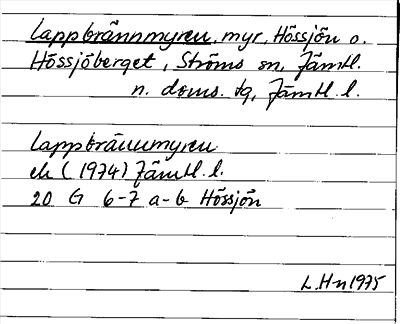 Lappbrännmyren, myr, Hössjön o.
Hössjöberget, Ströms sn, Jämtl.
n. doms. tg, Jämtl. l.
Lappbrännmyren
ek (1974) Jämtl. l.
20 G 6-7 a-b Hössjön
L.Hn 1975